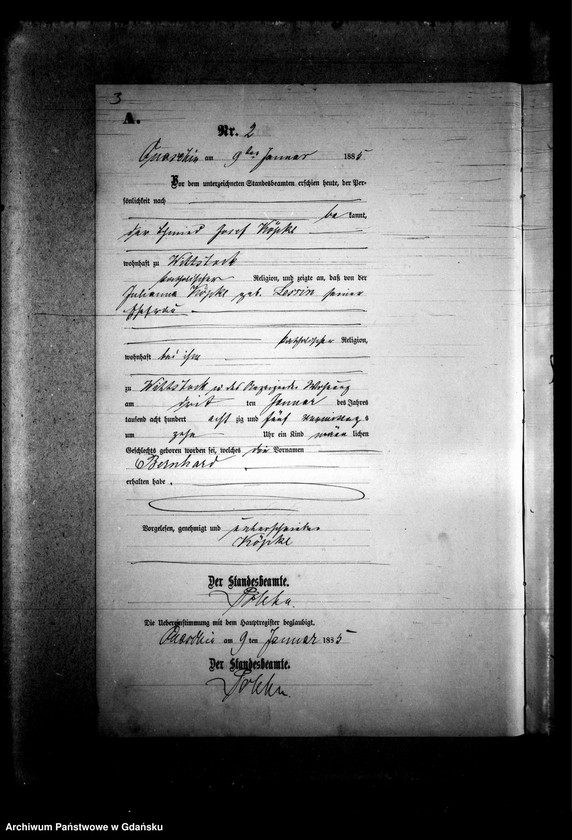 3
A.
Nr. 2
am 9ten Januar 1885
Vor dem unterzeichneten Standesbeamten erschien heute, der Per-
sönlichkeit nach
be kannt,
der Schmied Josef Köpke
wohnhaft zu Wittstock
katholischer Religion, und zeigte an, daß von der
Julianna Köpke geb. seiner
Ehefrau
katholischer Religion,
wohnhaft bei ihm
zu Wittstock in des Anzeigenden Wohnung
am ten Januar des Jahres
tausend acht hundert acht zig und fünf Vormittags
um zehn Uhr ein Kind männ lichen
Geschlechts geboren worden sei, welches die Vornamen
Bernhard
erhalten habe.
Vorgelesen, genehmigt und unterschrieben
Köpke
Der Standesbeamte.
Die Uebereinstimmung mit dem Hauptregister beglaubigt.
am 9 ten Januar 1885
Der Standesbeamte.
Archiwum Państwowe w Gdańsku